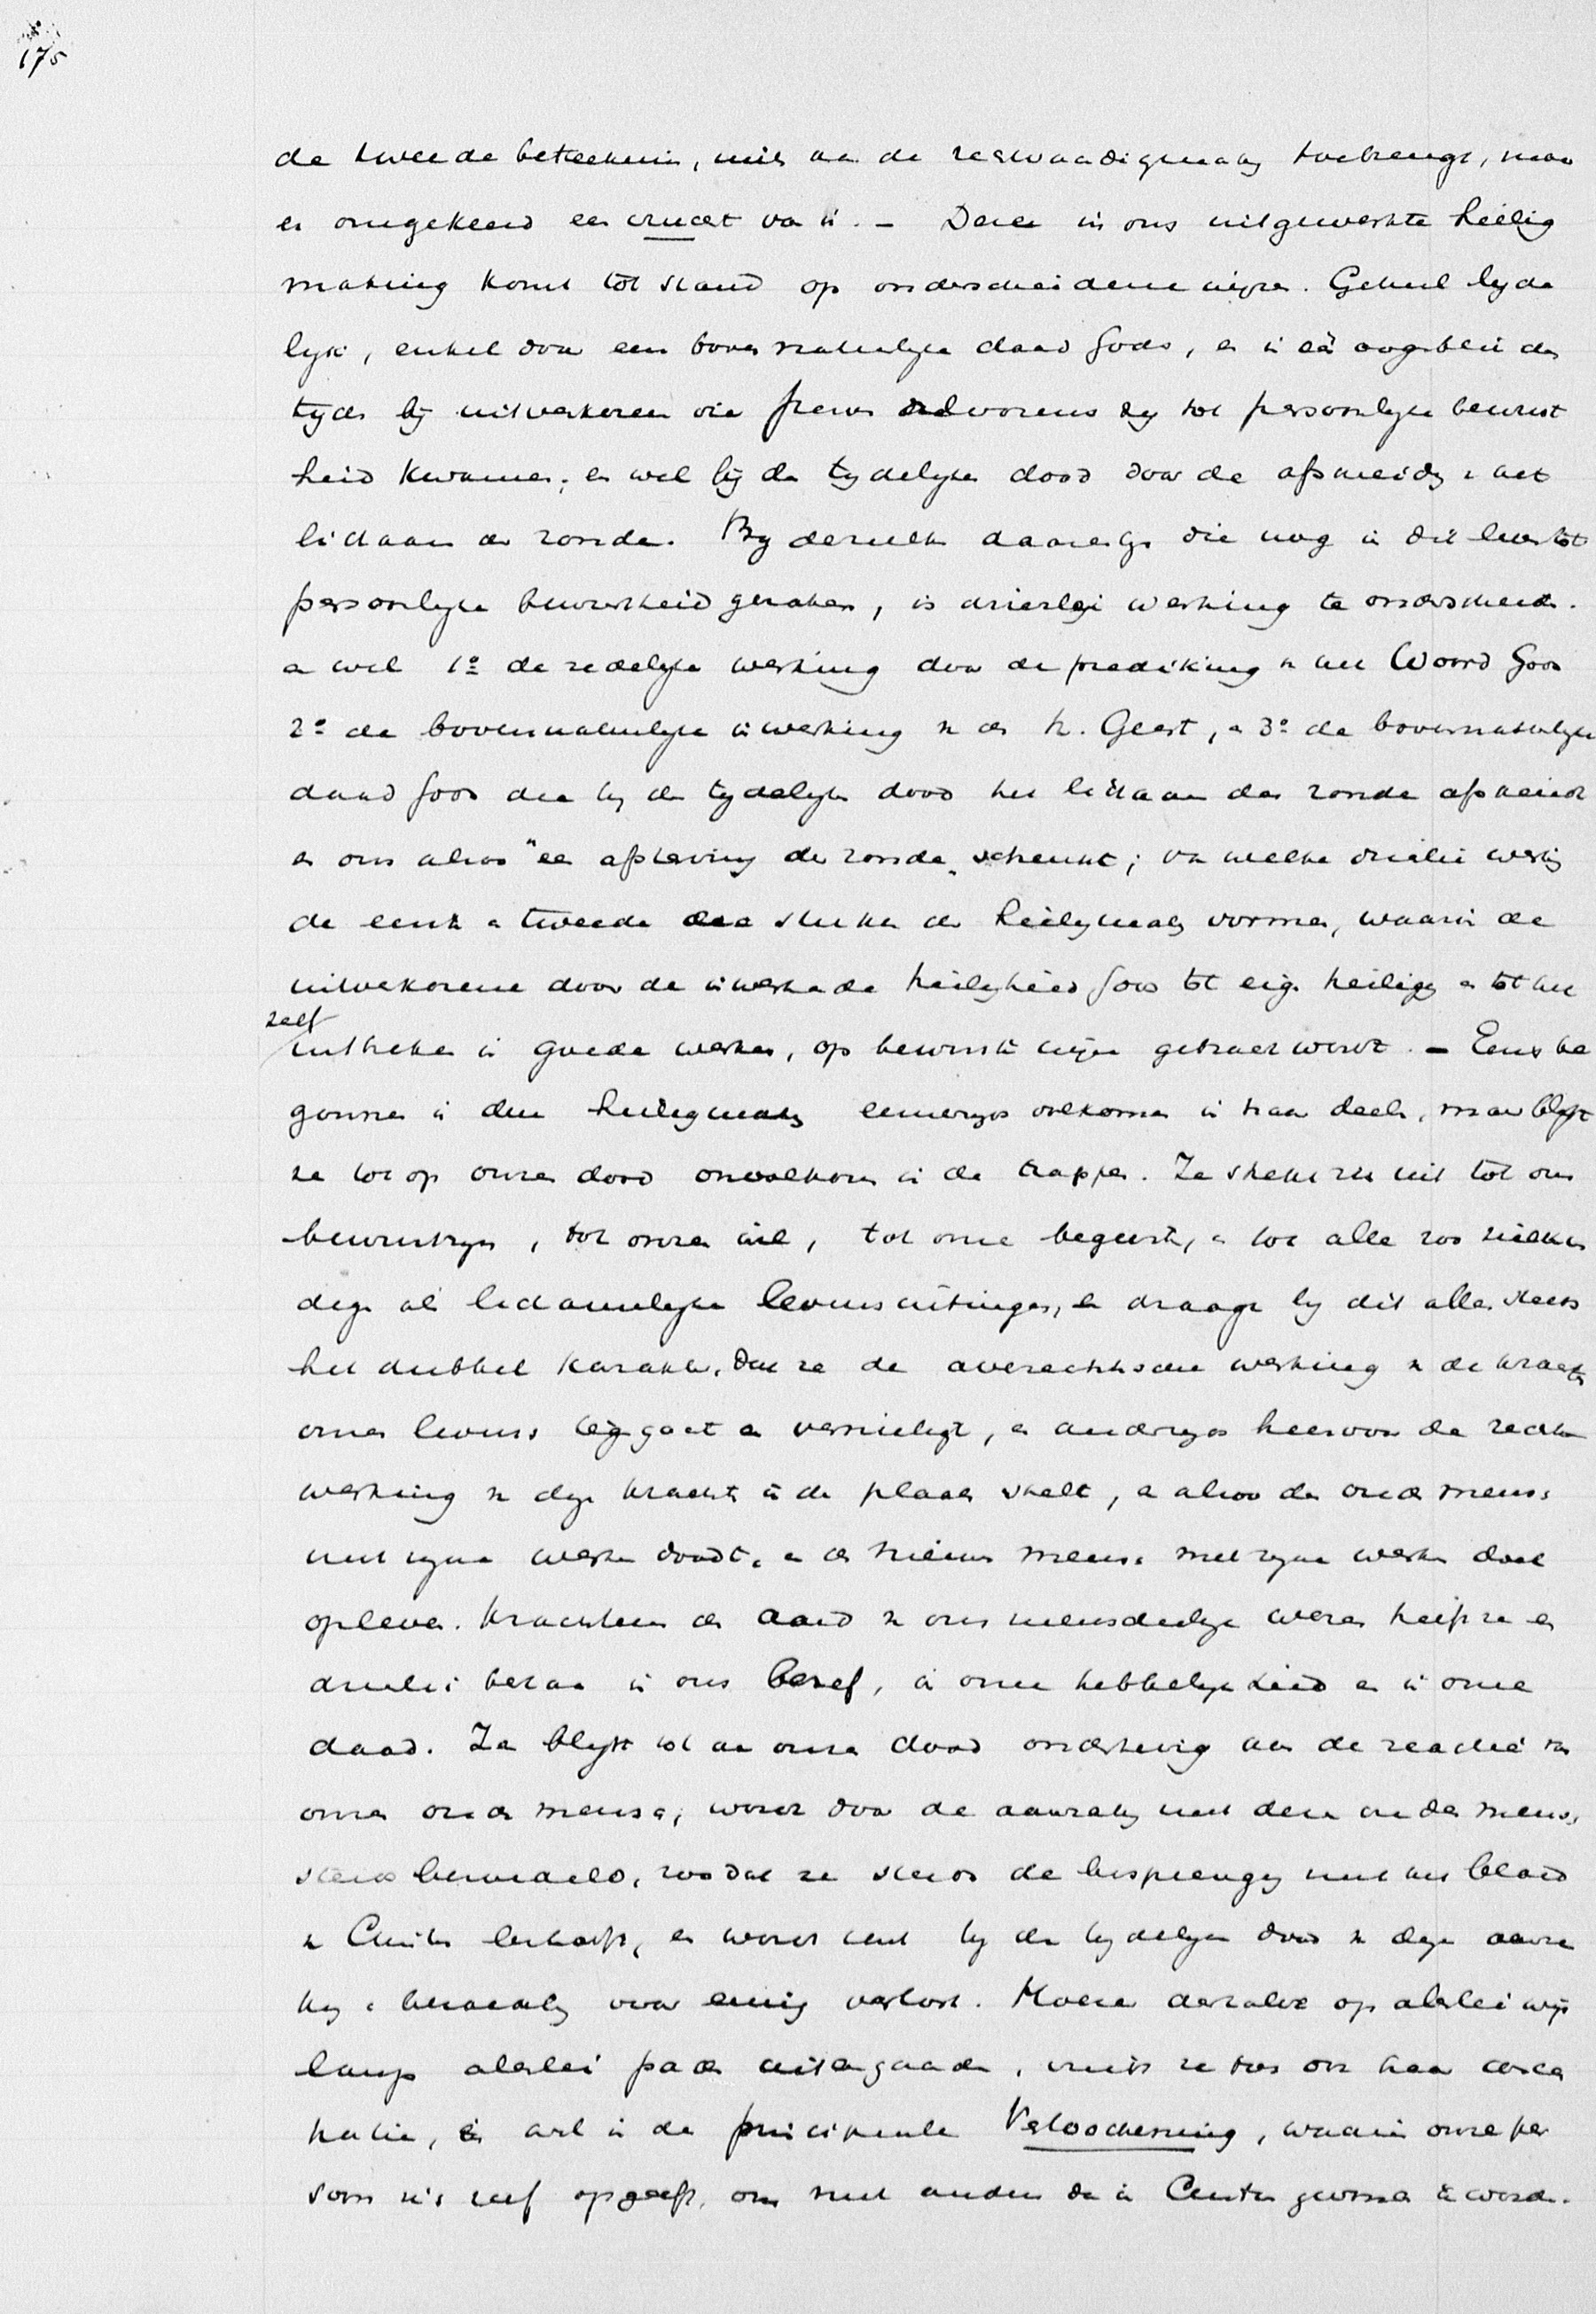 175
de tweede beteekenis, niets aan de rechtvaardigmaking toebrengt, maar
er omgekeerd een vrucht van is. – Deze in ons uitgewerkte heilig
making komt tot stand op onderscheidene wijze. Geheel lijde
lijk, enkel door een bovennatuurlijke daad Gods, en in één oogenblik des
tijds bij uitverkorenen die sterven alvorens zij tot persoonlijke bewust
heid kwamen; en wel bij den tijdelijken dood door de afsnijding van het
lichaam der zonde. Bij dezulken daarentegen die nog in dit leven tot
persoonlijke bewustheid geraken, is drieërlei werking te onderscheiden.
en wel 1º de redelijke werking door de prediking van het Woord Gods
2º de bovennatuurlijke inwerking van den H. Geest, en 3º de bovennatuurlijke
daad Gods die bij den tijdelijken dood het lichaam der zonde afsnijdt
en ons alzoo "een afsterving der zonde" schenkt; van welke drieërlei werking
de eerste en tweede die stukken der heiligmaking vormen, waarin de
uitverkorene door de inwerkende heiligheid Gods tot eigen heiliging en tot het
zelf
intreden in goede werken, op bewuste wijze gebracht wordt. – Eens be
gonnen is deze heiligmaking eenerzijds volkomen in haar deelen, maar blijft
ze tot op onzen dood onvolkomen in de trappen. Ze strekt zich uit tot ons
bewustzijn, tot onzen wil, tot onze begeerte, en tot alle zoo zielkun
dige als lichamelijke levensuitingen, en draagt bij dit alles steeds
het dubbel karakter, dat ze de averechtsche werking van de kracht
onzes levens tegengaat en vernietigt, en anderzijds hiervoor de rechte
werking van deze kracht in de plaats stelt, en alzoo den ouden mensch
met zijne werken doodt, en den nieuwen mensch met zijne werken doet
opleven. Krachtens den aard van ons menschelijk wezen heeft ze een
drieërlei bestaan in ons besef, in onze hebbelijkheid en in onze
daad. Ze blijft tot aan onzen dood onderhevig aan de reactie van
onzen ouden mensch; wordt door de aanraking met dezen ouden mensch
steeds bezoedeld, zoodat ze steeds de besprenging met het bloed
van Christus behoeft, en wordt eerst bij den tijdelijken dood van deze aanra
king en bezoedeling voor eeuwig verlost. Moete derhalve op allerlei wijs
langs allerlei paden uitengaande, vindt ze toch ons haar concen
tratie, en wel in de principieele Verloochening, waarin onze per
soon zich zelf opgeeft, om met anderen in Christus gevonden te worden.